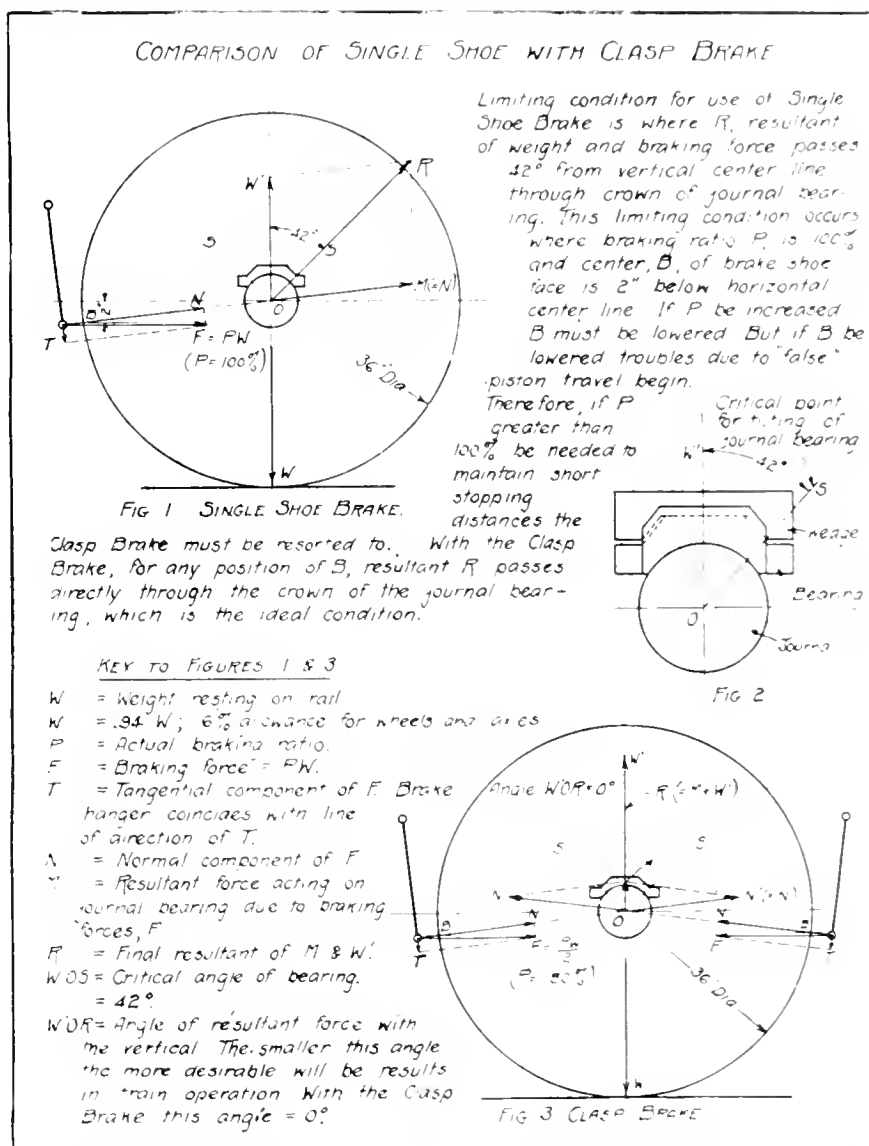 COMPARISON OF SINGLE SHOE WITH CLASP BRAKE
Limiting condition for use of Single
Shoe Brake is where R, resultant
of weight and braking force passes
42° from vertical center line
through crown of journal bear-
ing. This limiting condition occurs
where braking ratio P, is 100%
and center, B, of brake shoe
face is 2" below horizontal
center line If P be increased
B must be lowered But if B be
lowered troubles due to "false"
piston travel begin.
Therefore, if P
greater than
100% be needed to
maintain short
stopping
distances the
Clasp Brake must be resorted to. With the Clasp
Brake, for any position of B, resultant R passes
directly through the crown of the journal bear-
ing, which is the ideal condition.
W'
R
42°
S
S
M(=N)
O
B
2"
N
T
F = PW
(P = 100%)
36" Dia
W
FIG 1 SINGLE SHOE BRAKE.
Critical point
for tilting of
journal bearing
W'
42°
S
Wedge
Bearing
O
Journa
FIG 2
KEY TO FIGURES 1 & 3
W = Weight resting on rail
W = .94 W; 6% allowance for wheels and axles
P = Actual braking ratio.
F = Braking force = PW.
T = Tangential component of F. Brake
hanger coincides with line
of direction of T.
N = Normal component of F
= Resultant force acting on
journal bearing due to braking
forces, F
R = Final resultant of M & W'.
WOS = Critical angle of bearing.
= 42°.
W'OR = Angle of resultant force with
the vertical The smaller this angle
the more desirable will be results
in train operation With the Clasp
Brake this angle = 0°.
W'
Angle W'OR = 0°
S
S
N
O
B
N
T
F
36" Dia
W
FIG 3 CLASP BRAKE